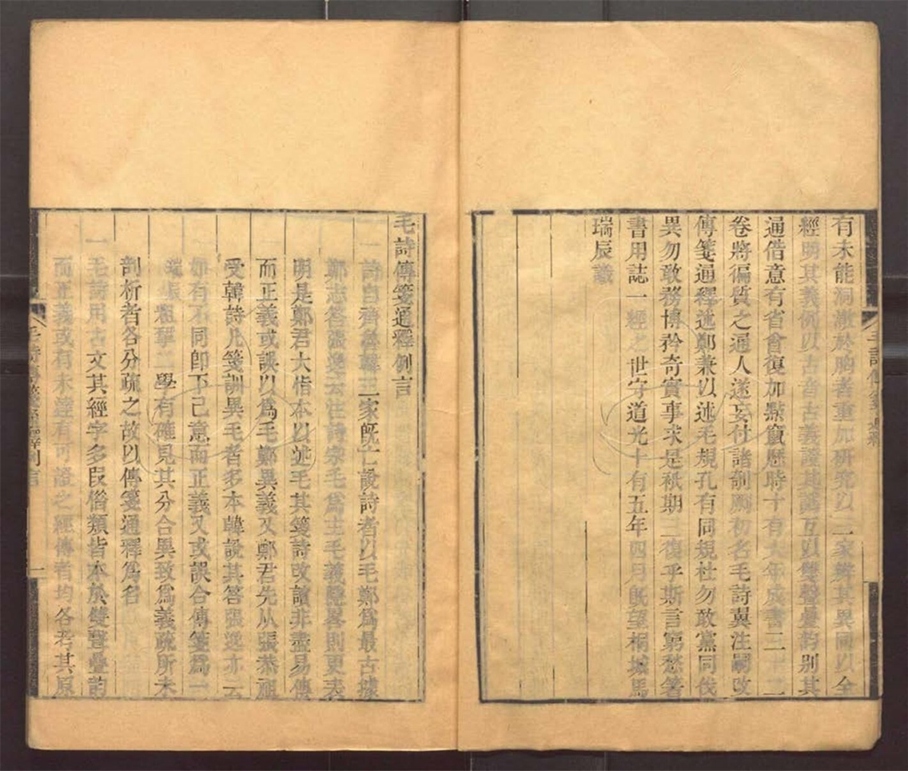 有未能洞澈於胸者重加研究以三家辨其異同以全
經明其義例以古音古義證其譌互以雙聲疊韵別其
通借意有省會復加點竄歷時十有六年成書三十二
卷將徧質之通人遂妄付諸剞劂初名毛詩翼注嗣改
傳箋通釋述鄭兼以述毛規孔有同規杜勿敢黨同伐
異勿敢務博矜奇實事求是祇期三復乎斯言窮愁箸
書用誌一經之世守道光十有五年四月旣望桐城馬
瑞辰識
毛詩傳箋通釋例言
一詩自齊魯韓三家旣亡說詩者以毛鄭爲最古據
鄭志答張逸云注詩宗毛爲主毛義隱略則更表
明是鄭君大恉本以述毛其箋詩改讀非盡易傳
而正義或誤以爲毛鄭異義又鄭君先从張恭祖
受韓詩凡箋訓異毛者多本韓說其答張逸亦云
如有不同卽下己意而正義又或誤合傳箋爲一
學有確見其分合異致爲義疏所未
剖析者各分疏之故以傳箋通釋爲名
一毛詩用古文其經字多叚借類皆本於雙聲疊韵
而正義或有未達有可證之經傳者均各考其原
毛詩傳箋通釋例言
一